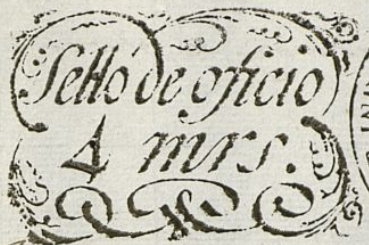 Selló de oficio
4 mrs.